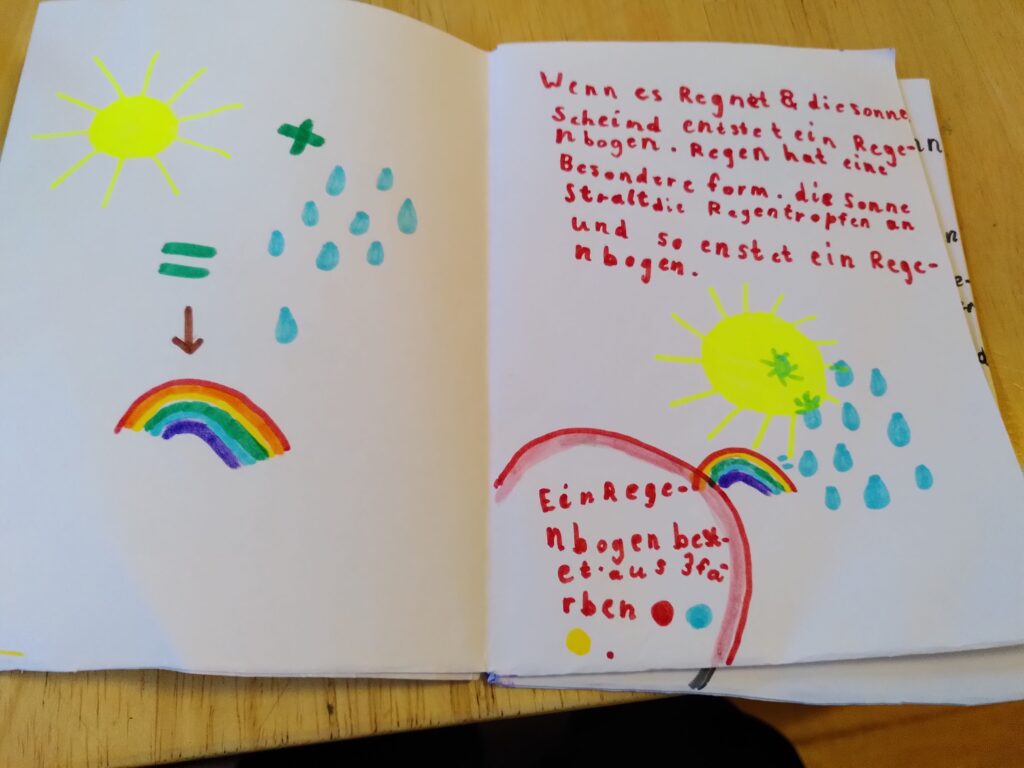 +
=
Wenn es Regnet & die sonne
Scheind entstet ein Rege-
nbogen. Regen hat eine
Besondere form. die sonne
Stralt die Regentropfen an
und so enstet ein Rege-
nbogen.
Ein Rege-
nbogen best-
et aus 3 fä
rben